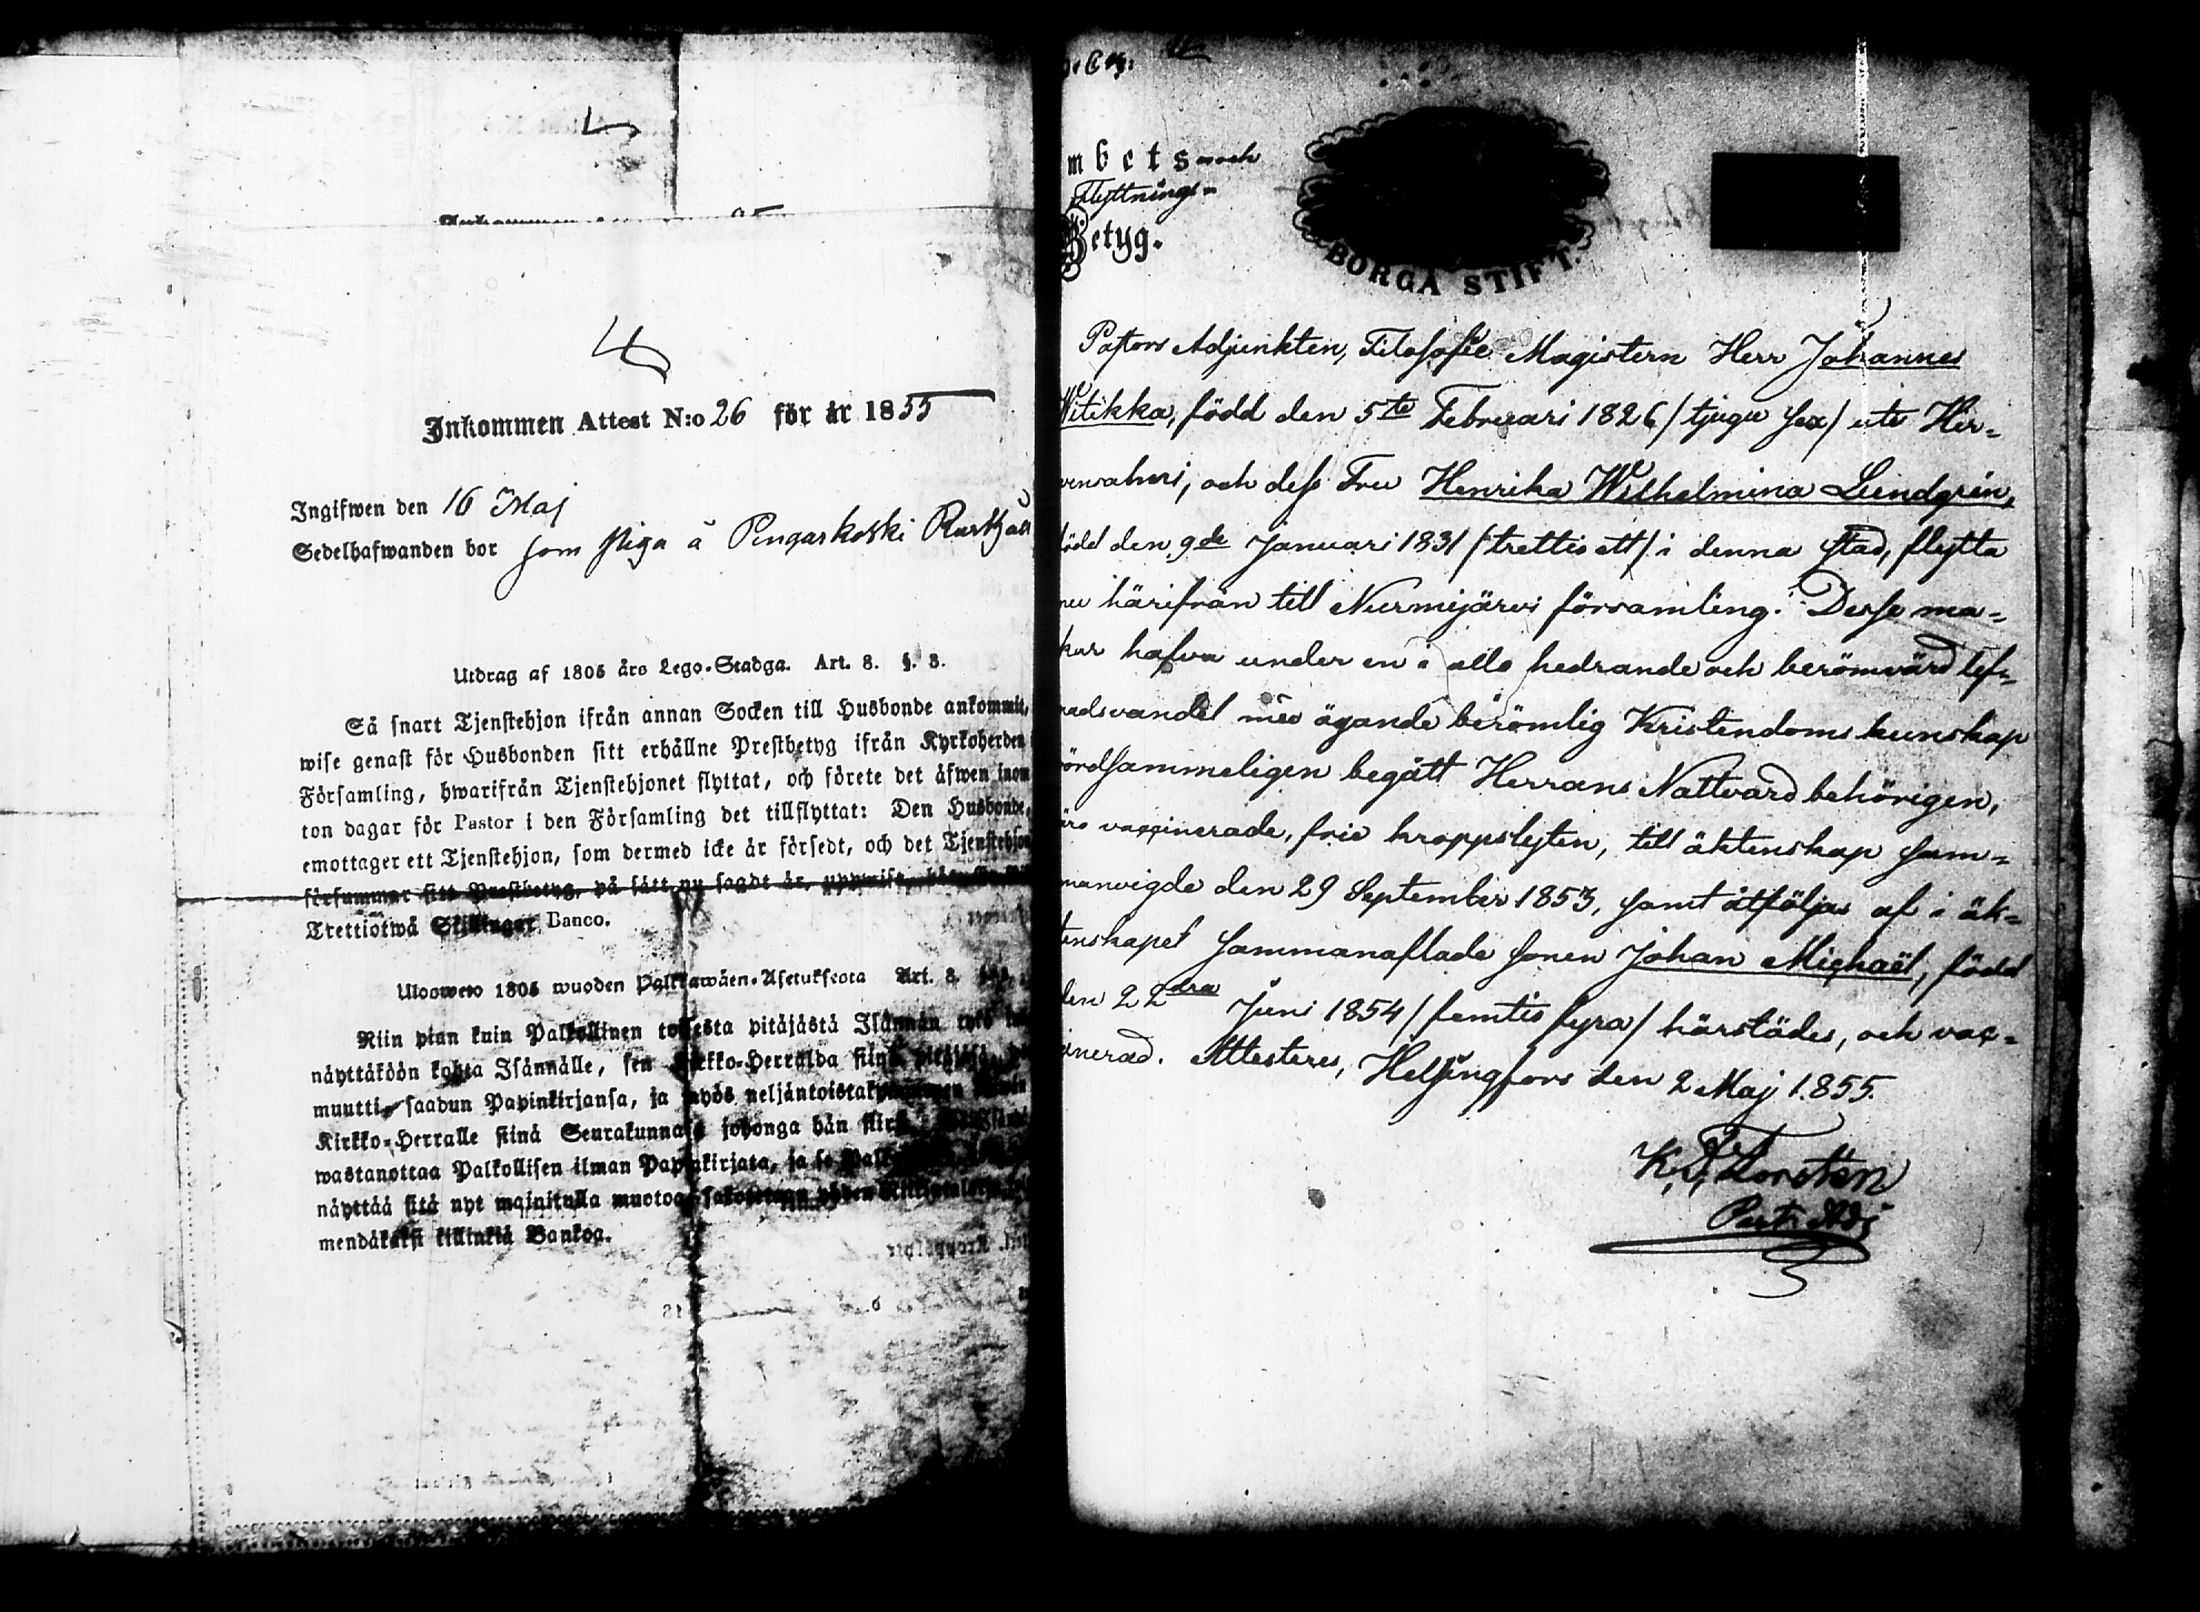 Inkommen Attest N:o 26 för år 1855
Ingifwen den 16 Maj
Sedelhafwanden bor som Piga å Pengarkoski
Utdrag af 1805 års Lego-Stadga. Art. 8. §. 3.
Så snart Tjenstehjon ifrån annan Socken till Husbonde ankommit,
wise genast för Husbonden sitt erhållne Prestbetyg ifrån Kyrkoherden
Församling, hwarifrån Tjenstehjonet flyttat, och förete det äfwen inom
ton dagar för Pastor i den Församling det tillflyttat: Den Husbonde,
emottager ett Tjenstehjon, som dermed icke är försedt, och det Tjenstehjon
försummar sitt Prestbetyg, på sätt nu sagdt är, uppwisa,
Trettiotwå Skillingar Banco.
Uloswero 1805 wuoden Palkkawäen-Asetuksesta Art. 8.
Niin pian kuin Palkollinen toisesta pitäjästä Isännän tykö
näyttäköön kohta Isännälle, sen Kirkko-Herralda siinä pitäjäsä,
muutti, saadun Papinkirjansa, ja myös neljäntoistakymmenen
Kirkko-Herralle siinä Seurakunnasa johonga hän siirtyi
wastanottaa Palkollisen ilman Papinkirjata, ja se
näyttää sitä nyt mainitulla muotoa, sakotetaan
mendäkaksi killinkiä Bankoa.
mbets- och
Flyttnings-
Betyg.
BORGÅ STIFT.
Pastors Adjunkten, Filosofie Magistern Herr Johannes
Witikka, född den 5te Februari 1826 /tjugu sex/ uti Hir-
vensalmi, och dess Fru Henrika Wilhelmina Lundgrén,
född den 9de Januari 1831 /trettio ett/ i denna stad, flytta
nu härifrån till Nurmijärvi församling. Desse ma-
kar hafva under en i allo hedrande och berömvärd lef-
nadsvandel med ägande berömlig Kristendoms kunskap
vördsammeligen begått Herrans Nattvard behörigen,
äro vaccinerade, frie kroppslyten, till äktenskap sam-
manvigde den 29 September 1853, samt åtföljas af i äk-
tenskapet sammanaflade sonen Johan Michaël, född
den 22dra Juni 1854 /femtio fyra/ härstädes, och vac-
cinerad. Attesteras, Helsingfors den 2 Maj 1855.
K. J. Forstén
Past: Adj